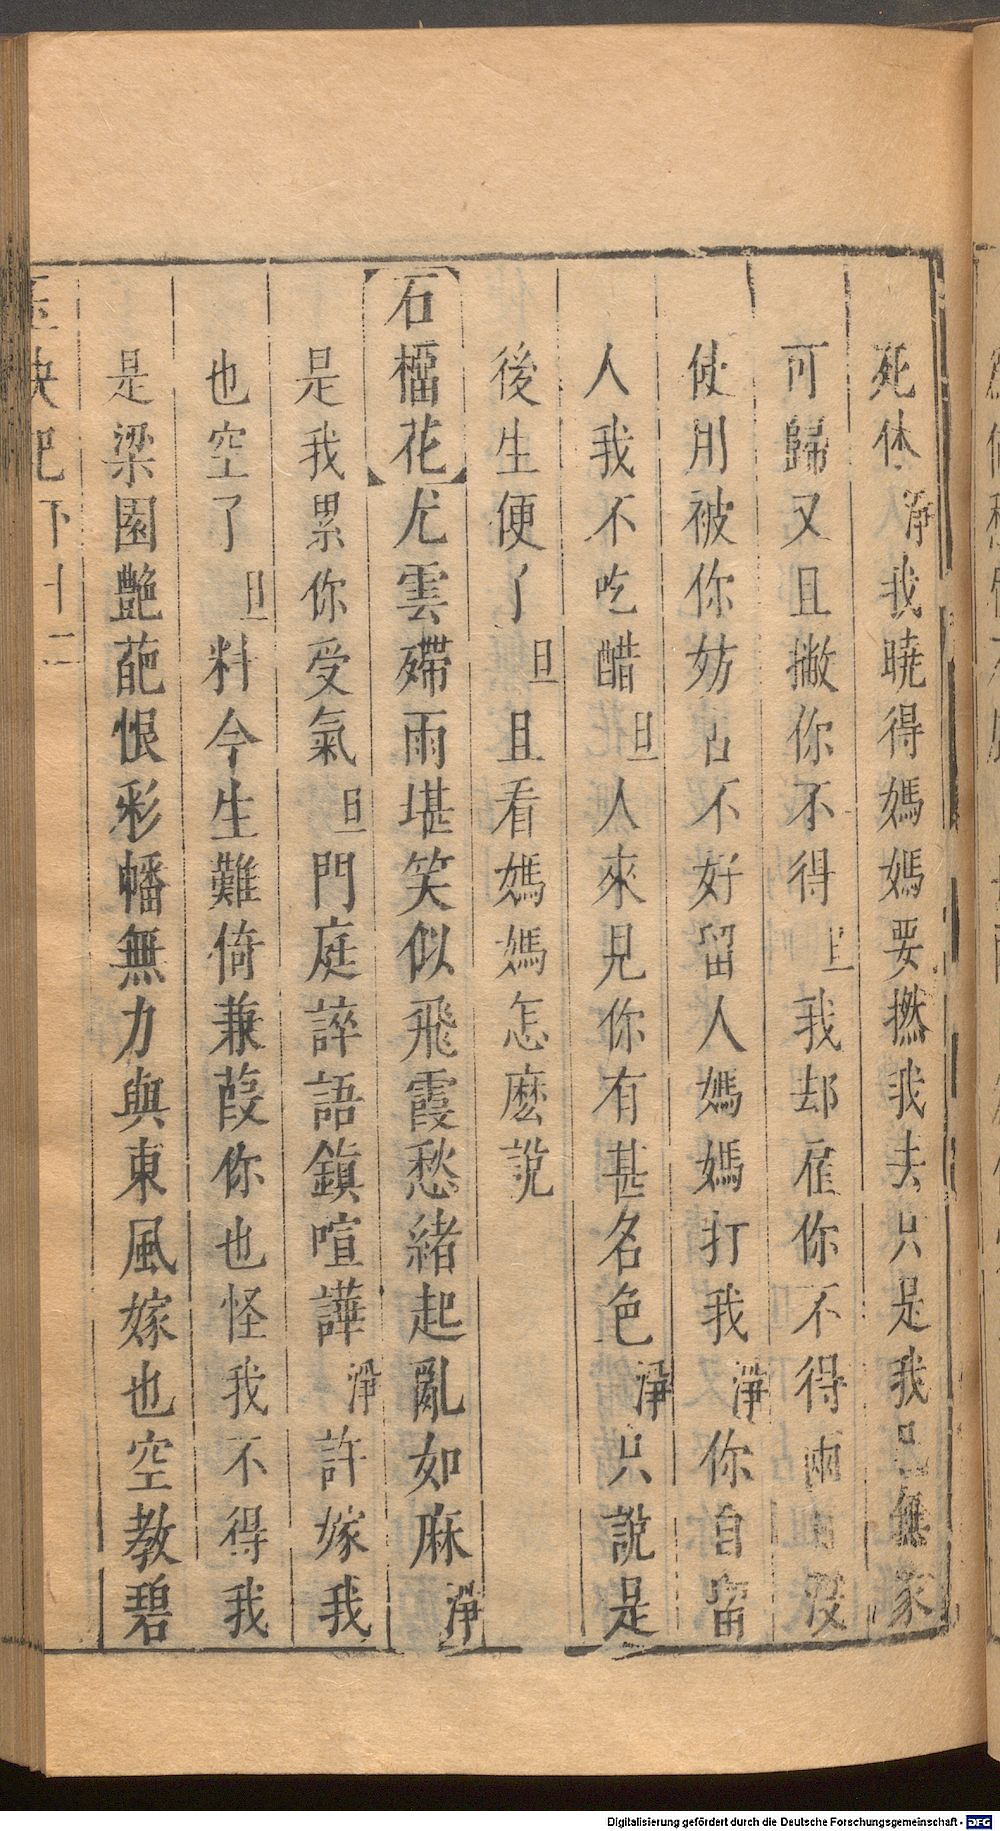 死休淨我曉得媽媽要撚我去只是我已無家
可歸又且撇你不得旦我却雇你不得兩日沒
使用被你妨占不好留人媽媽打我淨你自留
人我不吃醋旦人來見你有甚名色淨只說是
後生便了旦且看媽媽怎麽說
【石榴花】尤雲殢雨堪笑似飛霞愁緒起亂如麻淨
是我累你受氣旦門庭誶語鎮喧譁淨許嫁我
也空了旦料今生難倚蒹葭你也怪我不得我
是梁園艷葩恨彩幡無力與東風嫁也空教碧
玉玦記下十二
Digitalisierung gefördert durch die Deutsche Forschungsgemeinschaft - DFG